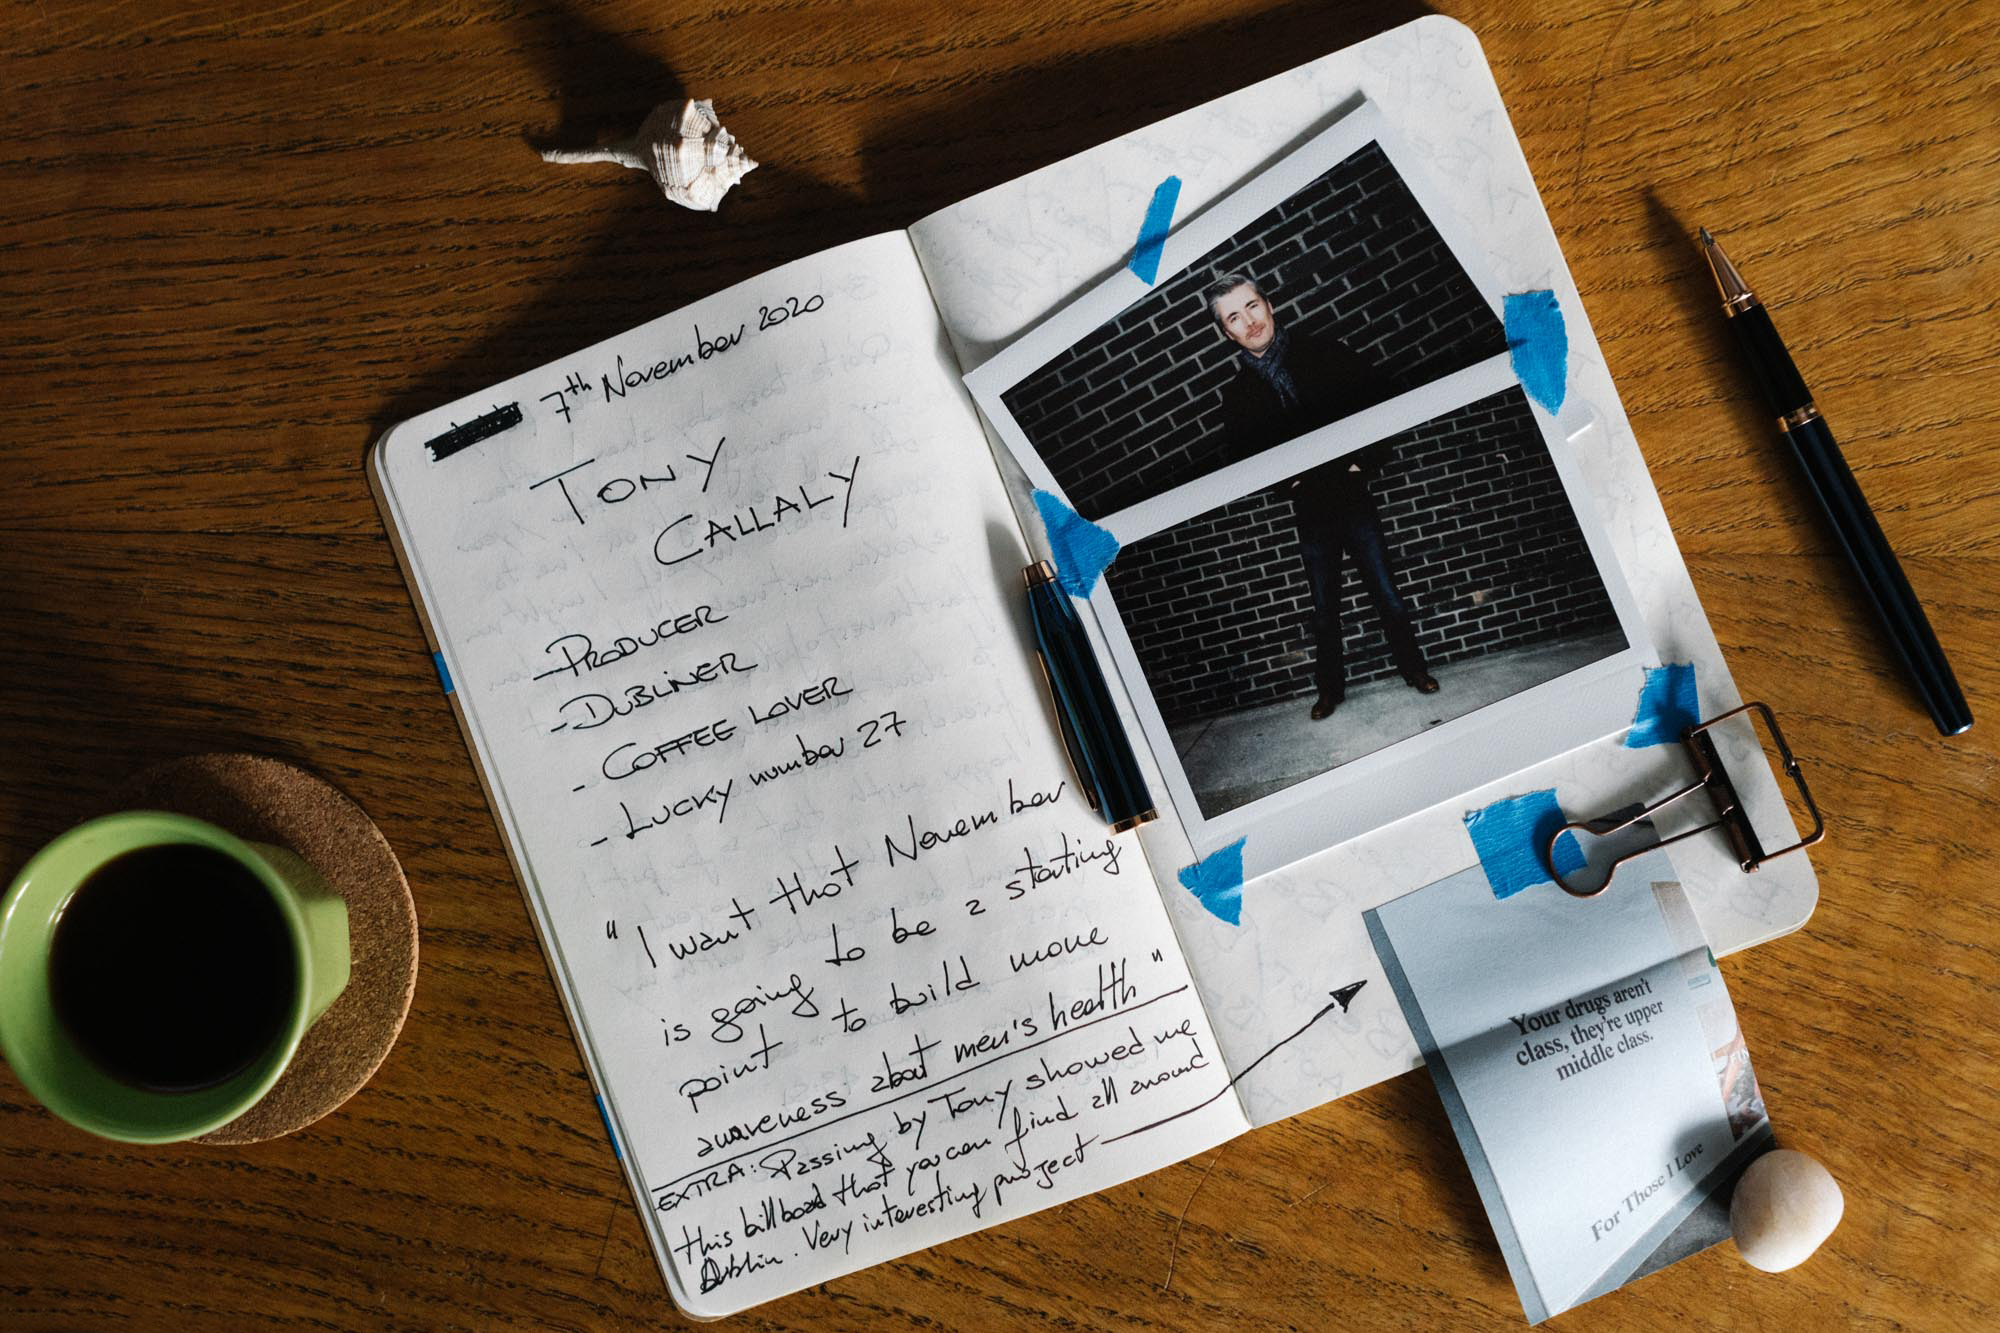 7th November 2020
TONY
CALLALY
- PRODUCER
- DUBLINER
- COFFEE LOVER
- LUCKY number 27
"I want that November
is going to be a starting
point to build more
awareness about men's health"
EXTRA: Passing by Tony showed me
this billboad that you can find all around
Dublin. Very interesting project
Your drugs aren't
class, they're upper
middle class.
For Those I Love